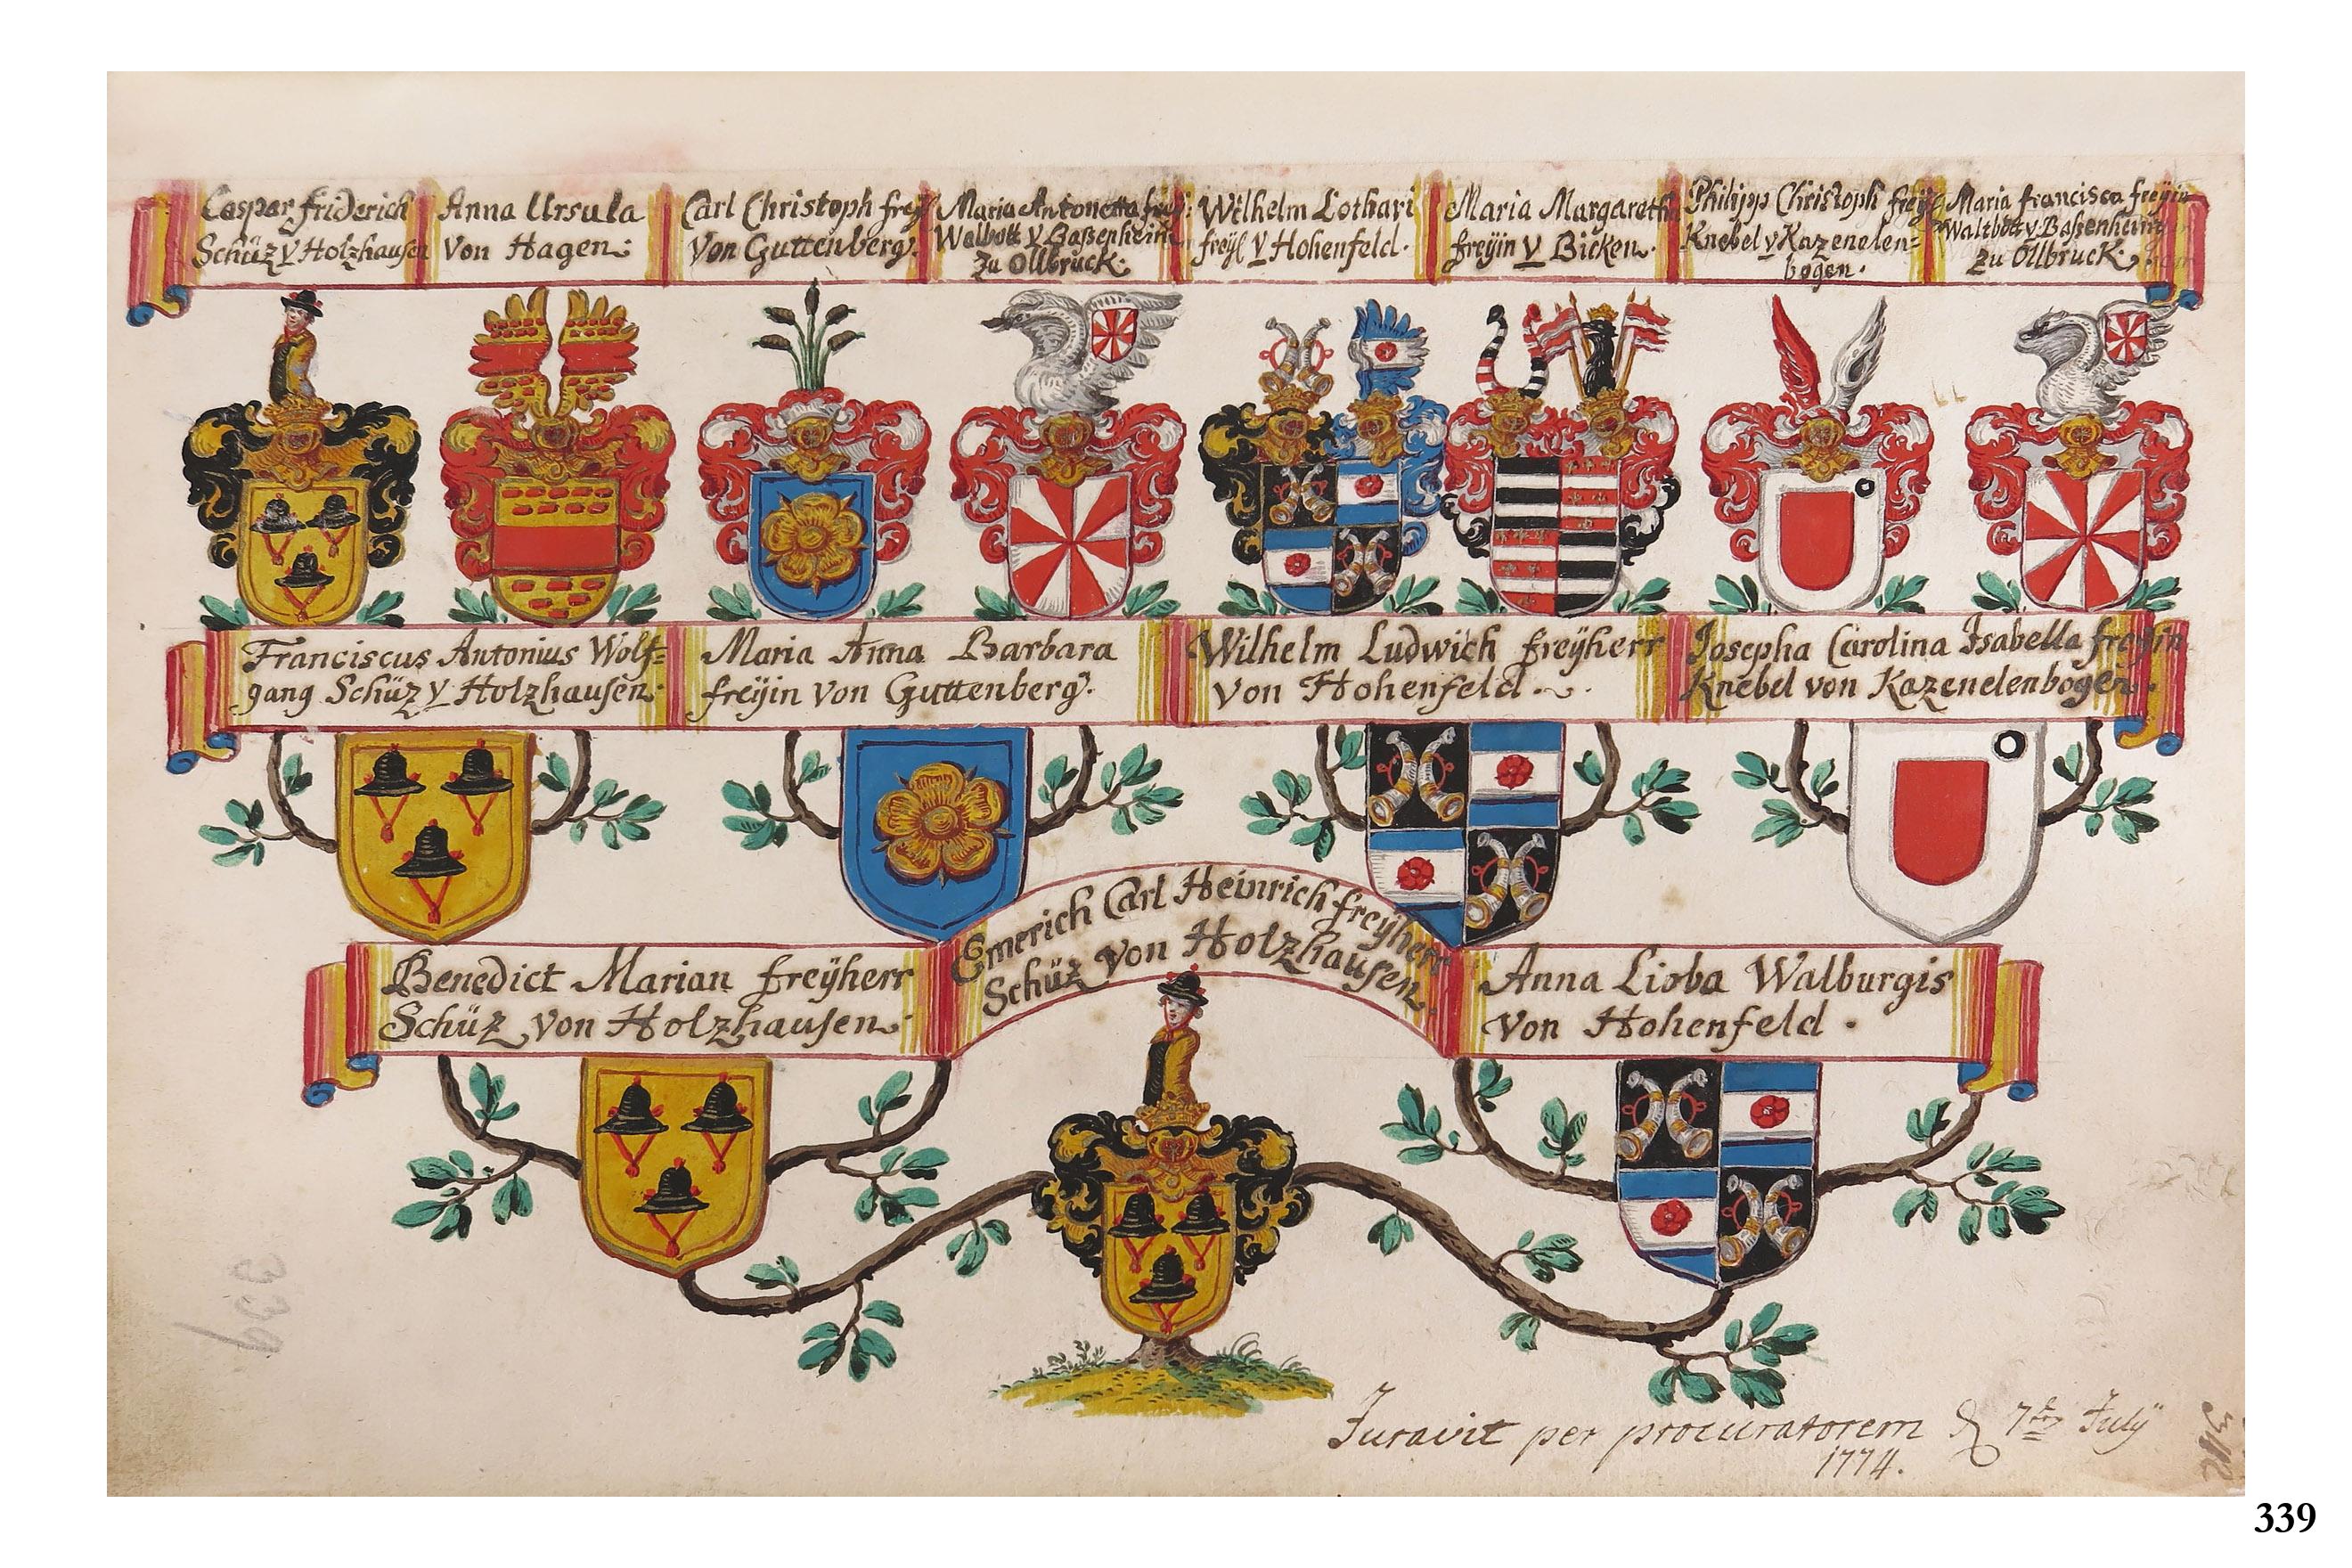 Caspar friderich
Schüz v Holzhausen
Anna Ursula
Von Hagen:
Carl Christoph frey
Von Guttenberg.
Maria Antonetta frey:
Walbott v Baßenheim
zu Ollbruck.
Wilhelm Lothari
freyl v Hohenfeld.
Maria Margareth
freÿin v Bicken.
Philipp Christoph freyl
Knebel v Kazenelen=
bogen.
Maria francisca freÿin
Waltbott v. Baßenheim
zu Ollbruck.
Franciscus Antonius Wolf=
gang Schüz v Holzhausen.
Maria Anna Barbara
freÿin von Guttenberg.
Wilhelm Ludwich freÿherr
von Hohenfeld.
Josepha Carolina Isabella freÿin
Knebel von Kazenelenbogen.
Benedict Marian freÿherr
Schüz von Holzhausen.
Emerich Carl Heinrich freÿherr
Schüz von Holzhausen.
Anna Lioba Walburgis
von Hohenfeld.
Juravit per procuratorem 7 July
1774.
339
339